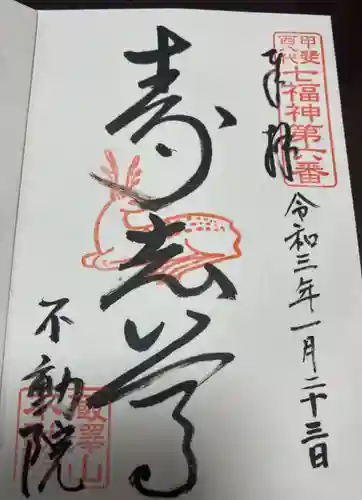 奉拝
甲斐
西八代
七福神第六番
令和三年一月二十三日
寿老尊
不動院